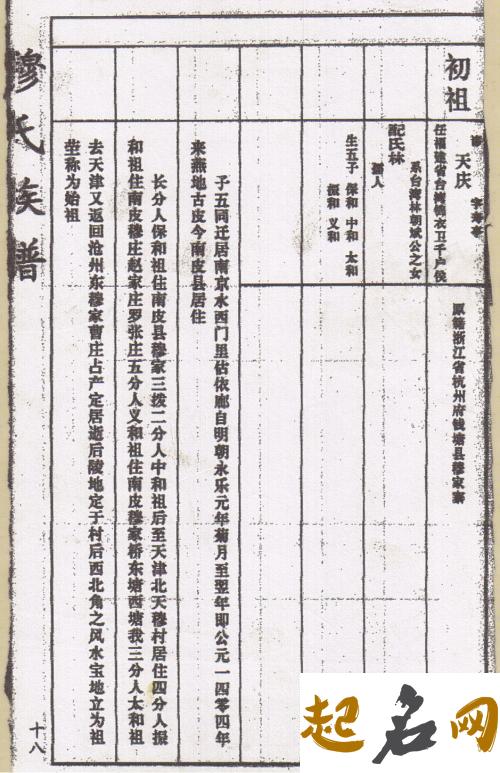 初祖
讳 天庆 字寿亭
原籍浙江省杭州府钱塘县穆家寨
任福建省台湾锦衣卫千户侯
系台湾林朝斌公之女
配氏林
孺人
生五子 保和 中和 太和
振和 义和
子五同迁居南京水西门里估依廊自明朝永乐元年菊月至翌年即公元一四零四年
来燕地古皮今南皮县居住
长分人保和祖住南皮县穆家三拨二分人中和祖后至天津北天穆村居住四分人振
和祖住南皮穆庄赵家庄罗张庄五分人义和祖住南皮穆家桥东塘西塘我三分人太和祖
去天津又返回沧州东穆家曹庄占产定居逝后陵地定于村后西北角之风水宝地立为祖
茔称为始祖
穆氏族谱
十八
起名网